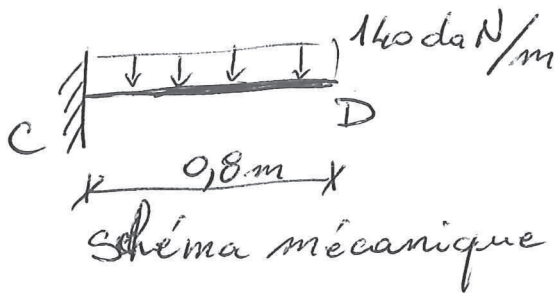 140 daN/m
C
D
0,8 m
Schéma mécanique